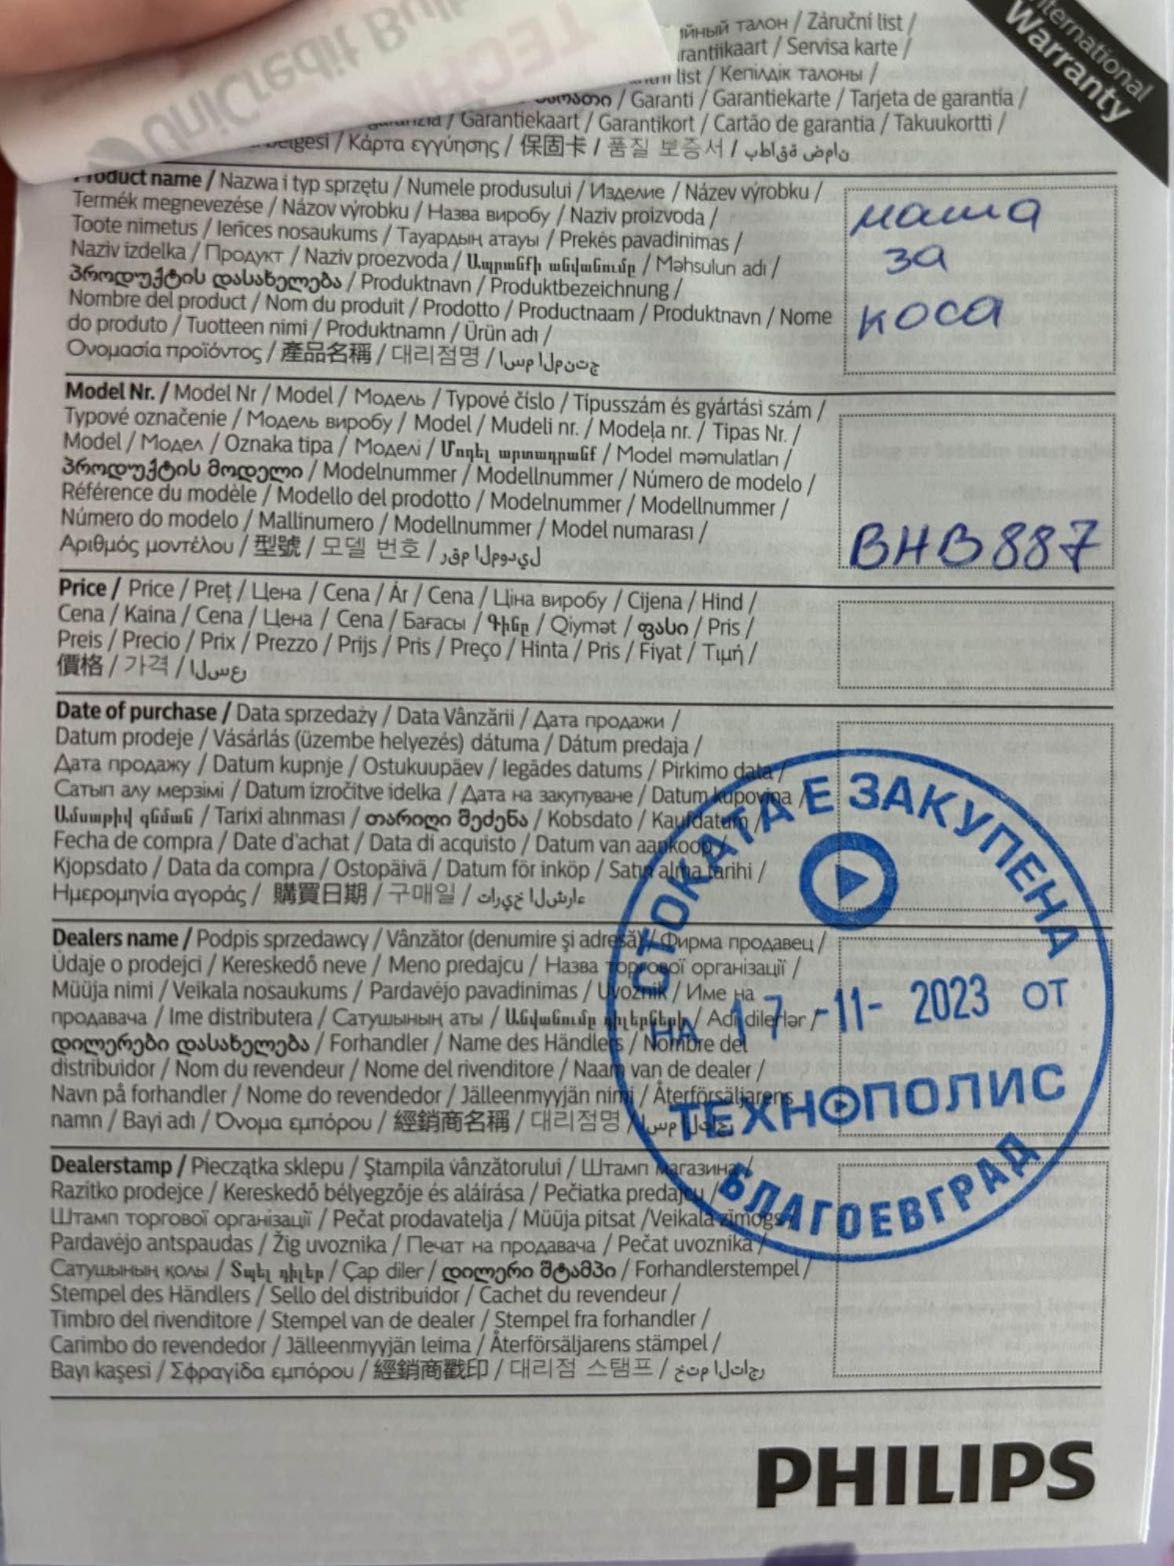 UniCredit Bul
International
Warranty
талон / Záruční list /
Garantiikaart / Servisa karte /
list / Кепілдік талоны /
/ Garanti / Garantiekarte / Tarjeta de garantía /
/ Garantiekaart / Garantikort / Cartão de garantia / Takuukortti /
belgesi / Κάρτα εγγύησης / 保固卡 / 품질 보증서 / بطاقة ضمان
Product name / Nazwa i typ sprzętu / Numele produsului / Изделие / Název výrobku /
Termék megnevezése / Názov výrobku / Назва виробу / Naziv proizvoda /
Toote nimetus / Ierīces nosaukums / Тауардың атауы / Prekės pavadinimas /
Naziv izdelka / Продукт / Naziv proezvoda / Ապրանքի անվանումը / Məhsulun adı /
პროდუქტის დასახელება / Produktnavn / Produktbezeichnung /
Nombre del product / Nom du produit / Prodotto / Productnaam / Produktnavn / Nome
do produto / Tuotteen nimi / Produktnamn / Ürün adı /
Ονομασία προϊόντος / 產品名稱 / 대리점명 / اسم المنتج
маша
за
коса
Model Nr. / Model Nr / Model / Модель / Typové číslo / Típusszám és gyártási szám /
Typové označenie / Модель виробу / Model / Mudeli nr. / Modeļa nr. / Tipas Nr. /
Model / Модел / Oznaka tipa / Моделі / Մոդել արտադրանք / Model məmulatları /
პროდუქტის მოდელი / Modelnummer / Modellnummer / Número de modelo /
Référence du modèle / Modello del prodotto / Modelnummer / Modellnummer /
Número do modelo / Mallinumero / Modellnummer / Model numarası /
Αριθμός μοντέλου / 型號 / 모델 번호 / رقم الموديل
BHB887
Price / Price / Preț / Цена / Cena / Ár / Cena / Ціна виробу / Cijena / Hind /
Cena / Kaina / Cena / Цена / Cena / Бағасы / Գինը / Qiymət / ფასი / Pris /
Preis / Precio / Prix / Prezzo / Prijs / Pris / Preço / Hinta / Pris / Fiyat / Τιμή /
價格 / 가격 / السعر
Date of purchase / Data sprzedaży / Data Vânzării / Дата продажи /
Datum prodeje / Vásárlás (üzembe helyezés) dátuma / Dátum predaja /
Дата продажу / Datum kupnje / Ostukuupäev / Iegādes datums / Pirkimo data /
Сатып алу мерзімі / Datum izročitve idelka / Дата на закупуване / Datum kupovina /
Ամսաթիվ գնման / Tarixi alınması / თარიღი შეძენა / Kobsdato / Kaufdatum /
Fecha de compra / Date d'achat / Data di acquisto / Datum van aankoop /
Kjopsdato / Data da compra / Ostopäivä / Datum för inköp / Satın alma tarihi /
Ημερομηνία αγοράς / 購買日期 / 구매일 / تاريخ الشراء
Dealers name / Podpis sprzedawcy / Vânzător (denumire și adresă) / Фирма продавец /
Údaje o prodejci / Kereskedő neve / Meno predajcu / Назва торгової організації /
Müüja nimi / Veikala nosaukums / Pardavėjo pavadinimas / Uvoznik / Име на
продавача / Ime distributera / Сатушының аты / Անվանումը դիլերների / Adı dilerlər /
დილერები დასახელება / Forhandler / Name des Händlers / Nombre del
distribuidor / Nom du revendeur / Nome del rivenditore / Naam van de dealer /
Navn på forhandler / Nome do revendedor / Jälleenmyyjän nimi / Återförsäljarens
namn / Bayi adı / Όνομα εμπόρου / 經銷商名稱 / 대리점명 / اسم التاجر
СТОКАТА Е ЗАКУПЕНА
НА 17 -11- 2023 ОТ
ТЕХНОПОЛИС
БЛАГОЕВГРАД
Dealerstamp / Pieczątka sklepu / Ștampila vânzătorului / Штамп магазина /
Razítko prodejce / Kereskedő bélyegzője és aláírása / Pečiatka predajcu /
Штамп торгової організації / Pečat prodavatelja / Müüja pitsat /Veikala zīmogs /
Pardavėjo antspaudas / Žig uvoznika / Печат на продавача / Pečat uvoznika /
Сатушының қолы / Տպել դիլեր / Çap diler / დილერი შტამპი / Forhandlerstempel /
Stempel des Händlers / Sello del distribuidor / Cachet du revendeur /
Timbro del rivenditore / Stempel van de dealer / Stempel fra forhandler /
Carimbo do revendedor / Jälleenmyyjän leima / Återförsäljarens stämpel /
Bayı kaşesi / Σφραγίδα εμπόρου / 經銷商戳印 / 대리점 스탬프 / ختم التاجر
PHILIPS